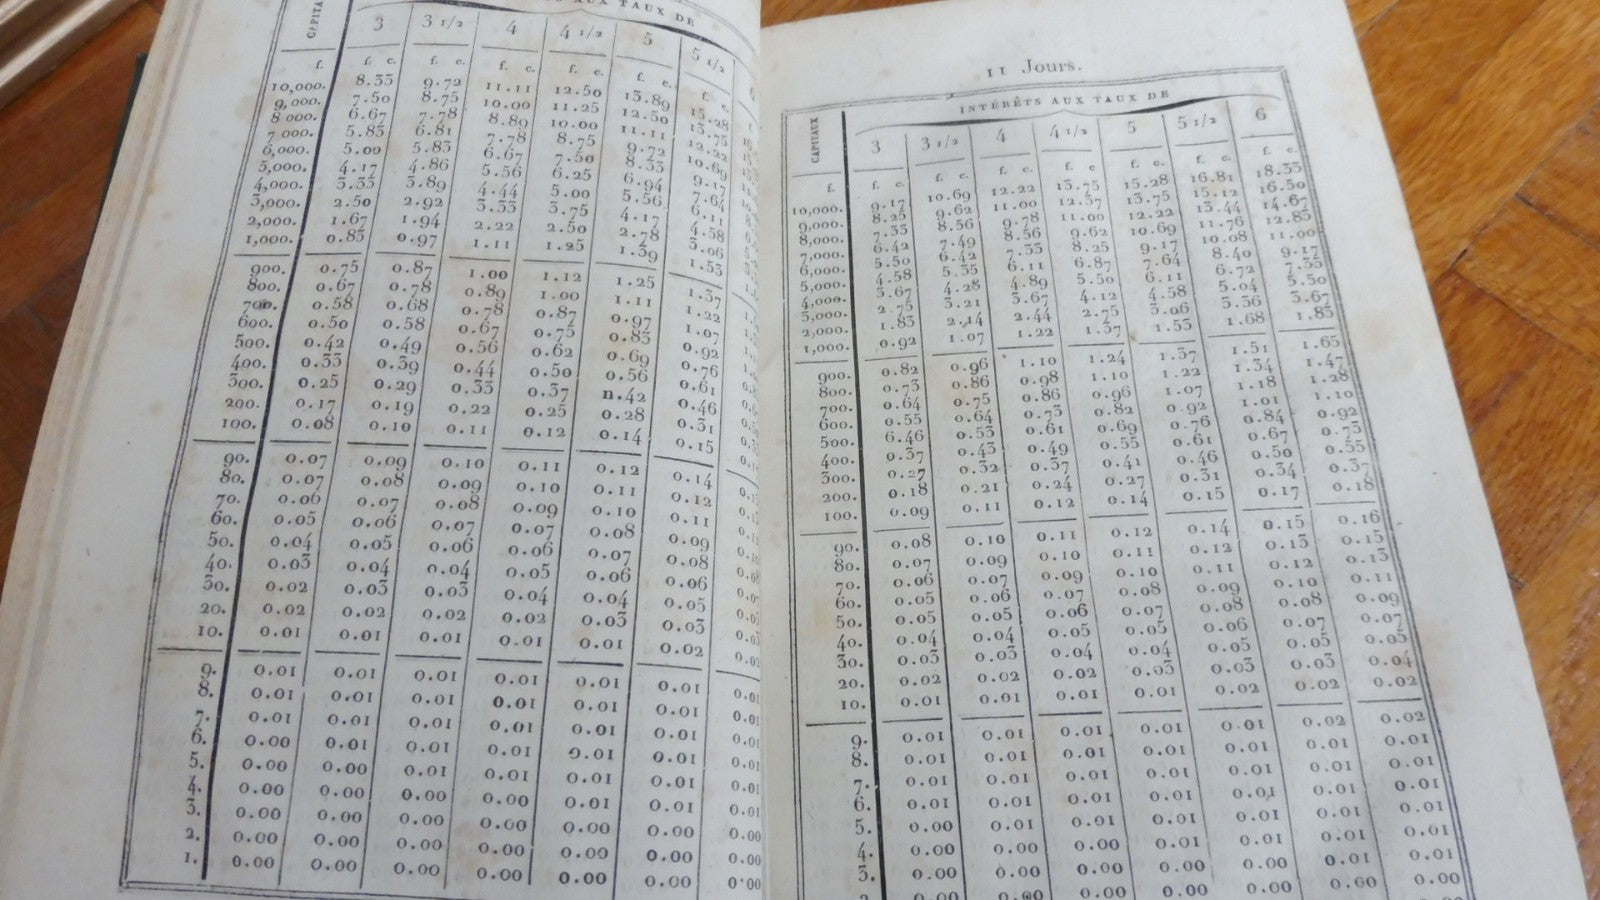 AUX TAUX DE
CAPITAUX 3 3 1/2 4 4 1/2 5 5 1/2
f. f. c. f. c. f. c. f. c. f. c. f. c.
10,000. 8.33 9.72 11.11 12.50 13.89 15.28
9,000. 7.50 8.75 10.00 11.25 12.50 13.75
8 000. 6.67 7.78 8.89 10.00 11.11 12.22
7 000. 5.83 6.81 7.78 8.75 9.72 10.69
6,000. 5.00 5.83 6.67 7.50 8.33 9.17
5,000. 4.17 4.86 5.56 6.25 6.94 7.64
4,000. 3.33 3.89 4.44 5.00 5.56 6.11
3,000. 2.50 2.92 3.33 3.75 4.17 4.58
2,000. 1.67 1.94 2.22 2.50 2.78 3.06
1,000. 0.83 0.97 1.11 1.25 1.39 1.53
900. 0.75 0.87 1.00 1.12 1.25 1.37
800. 0.67 0.78 0.89 1.00 1.11 1.22
700. 0.58 0.68 0.78 0.87 0.97 1.07
600. 0.50 0.58 0.67 0.75 0.83 0.92
500. 0.42 0.49 0.56 0.62 0.69 0.76
400. 0.33 0.39 0.44 0.50 0.56 0.61
300. 0.25 0.29 0.33 0.37 n.42 0.46
200. 0.17 0.19 0.22 0.25 0.28 0.31
100. 0.08 0.10 0.11 0.12 0.14 0.15
90. 0.07 0.09 0.10 0.11 0.12 0.14
80. 0.07 0.08 0.09 0.10 0.11 0.12
70. 0.06 0.07 0.08 0.09 0.10 0.11
60. 0.05 0.06 0.07 0.07 0.08 0.09
50. 0.04 0.05 0.06 0.06 0.07 0.08
40. 0.03 0.04 0.04 0.05 0.06 0.06
30. 0.02 0.03 0.03 0.04 0.04 0.05
20. 0.02 0.02 0.02 0.02 0.03 0.03
10. 0.01 0.01 0.01 0.01 0.01 0.02
9. 0.01 0.01 0.01 0.01 0.01 0.01 0.01
8. 0.01 0.01 0.01 0.01 0.01 0.01 0.01
7. 0.01 0.01 0.01 0.01 0.01 0.01 0.01
6. 0.00 0.01 0.01 0.01 0.01 0.01 0.01
5. 0.00 0.00 0.01 0.01 0.01 0.01 0.01
4. 0.00 0.00 0.00 0.01 0.01 0.01 0.01
3. 0.00 0.00 0.00 0.00 0.00 0.00 0.00
2. 0.00 0.00 0.00 0.00 0.00 0.00 0.00
1. 0.00 0.00 0.00 0.00 0.00 0.00 0.00
11 Jours.
INTÉRÊTS AUX TAUX DE
CAPITAUX 3 3 1/2 4 4 1/2 5 5 1/2 6
f. f. c. f. c. f. c. f. c. f. c. f. c. f. c.
10,000. 9.17 10.69 12.22 13.75 15.28 16.81 18.33
9,000. 8.25 9.62 11.00 12.37 13.75 15.12 16.50
8,000. 7.33 8.56 9.78 11.00 12.22 13.44 14.67
7,000. 6.42 7.49 8.56 9.62 10.69 11.76 12.83
6,000. 5.50 6.42 7.33 8.25 9.17 10.08 11.00
5,000. 4.58 5.35 6.11 6.87 7.64 8.40 9.17
4,000. 3.67 4.28 4.89 5.50 6.11 6.72 7.33
3,000. 2.75 3.21 3.67 4.12 4.58 5.04 5.50
2,000. 1.83 2.14 2.44 2.75 3.06 3.36 3.67
1,000. 0.92 1.07 1.22 1.37 1.53 1.68 1.83
900. 0.82 0.96 1.10 1.24 1.37 1.51 1.65
800. 0.73 0.86 0.98 1.10 1.22 1.34 1.47
700. 0.64 0.75 0.86 0.96 1.07 1.18 1.28
600. 0.55 0.64 0.73 0.82 0.92 1.01 1.10
500. 6.46 0.53 0.61 0.69 0.76 0.84 0.92
400. 0.37 0.43 0.49 0.55 0.61 0.67 0.73
300. 0.27 0.32 0.37 0.41 0.46 0.50 0.55
200. 0.18 0.21 0.24 0.27 0.31 0.34 0.37
100. 0.09 0.11 0.12 0.14 0.15 0.17 0.18
90. 0.08 0.10 0.11 0.12 0.14 0.15 0.16
80. 0.07 0.09 0.10 0.11 0.12 0.13 0.15
70. 0.06 0.07 0.09 0.10 0.11 0.12 0.13
60. 0.05 0.06 0.07 0.08 0.09 0.10 0.11
50. 0.05 0.05 0.06 0.07 0.08 0.08 0.09
40. 0.04 0.04 0.05 0.05 0.06 0.07 0.07
30. 0.03 0.03 0.04 0.04 0.05 0.05 0.05
20. 0.02 0.02 0.02 0.03 0.03 0.03 0.04
10. 0.01 0.01 0.01 0.01 0.02 0.02 0.02
9. 0.01 0.01 0.01 0.01 0.01 0.02 0.02
8. 0.01 0.01 0.01 0.01 0.01 0.01 0.01
7. 0.01 0.01 0.01 0.01 0.01 0.01 0.01
6. 0.01 0.01 0.01 0.01 0.01 0.01 0.01
5. 0.00 0.01 0.01 0.01 0.01 0.01 0.01
4. 0.00 0.00 0.01 0.01 0.01 0.01 0.01
3. 0.00 0.00 0.00 0.00 0.00 0.01 0.01
0.00 0.00 0.00 0.00 0.00 0.00